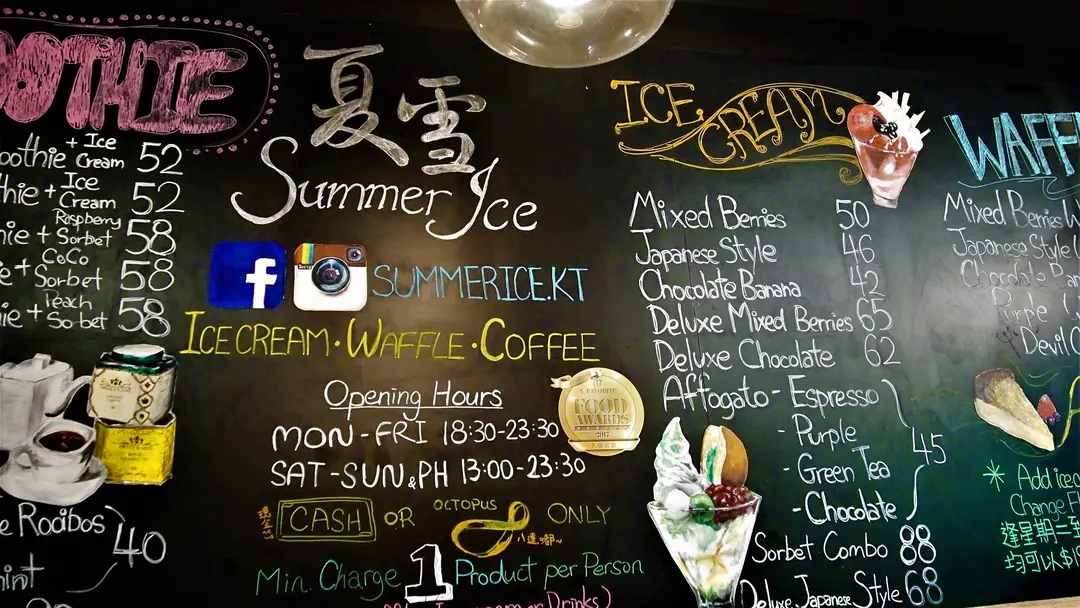 OOTHIE
+ Ice
oothie Cream 52
Ice
thie + Cream 52
Raspberry
hie + Sorbet 58
CoCo
e + Sorbet 58
Peach
ie + Sorbet 58
e Rooibos
40
int
夏雪
Summer Ice
f
SUMMERICE.KT
ICE CREAM · WAFFLE · COFFEE
Opening Hours
MON - FRI 18:30-23:30
SAT - SUN & PH 13:00-23:30
FOOD
AWARDS
2017
現金 CASH OR OCTOPUS ONLY
八達嘟~
Min. Charge 1 Product per Person
or Drinks)
ICE CREAM
Mixed Berries 50
Japanese Style 46
Chocolate Banana 42
Deluxe Mixed Berries 65
Deluxe Chocolate 62
Affogato - Espresso
- Purple
- Green Tea
- Chocolate
45
Sorbet Combo 88
Deluxe Japanese Style 68
WAFF
Mixed Berries W
Japanese Style
Chocolate Ban
Purple
Devil C
* Add ice c
Change Fl
逢星期一至
均可以$1